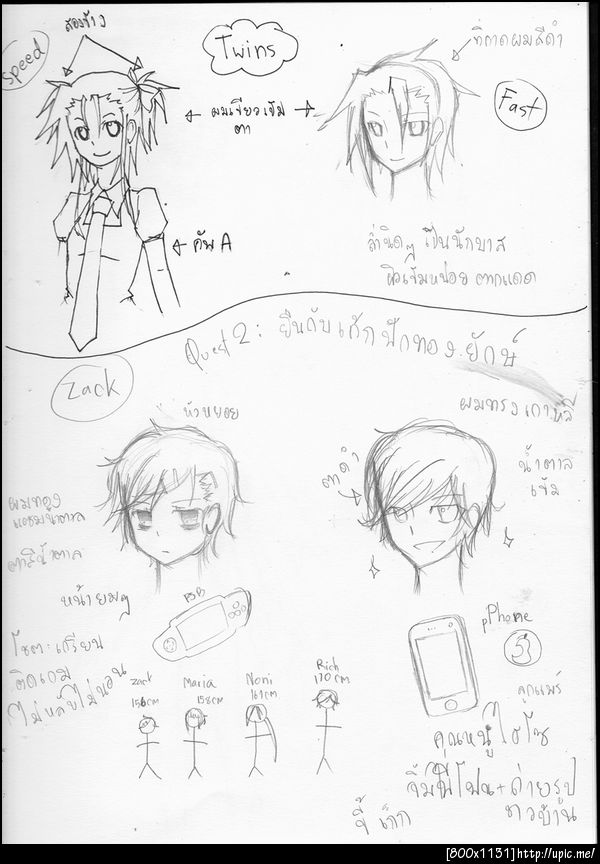 Speed
สองข้าง
Twins
ที่คาดผมสีดำ
Fast
ผมเขียวเข้ม
ตา
คัพ A
ล่ำนิดๆ เป็นนักบาส
ผิวเข้มหน่อย ตากแดด
Quest 2: ยืนกับเก้กฟักทองยักษ์
Zack
หัวหยอย
ผมทรงเกาหลี
ตาดำ
น้ำตาล
เข้ม
ผมทอง
แซมน้ำตาล
ตาสีน้ำตาล
หน้ายมๆ
PSB
โชตะเกรียน
ติดเกม
ไม่หลับไม่นอน
Zack
156cm
Maria
158cm
Noni
161cm
Rich
170cm
pPhone
5
ลูกแมร์
คุณหนูไฮโซ
จิ้มพีโฟน+ถ่ายรูป
ชาวบ้าน
ขี้เก็ก
[800x1131]http://upic.me/